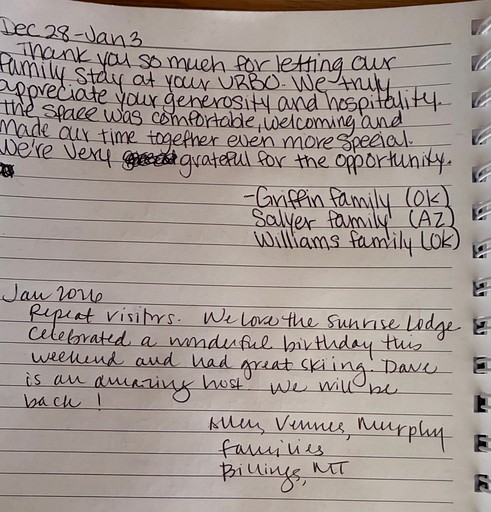 Dec 28-Jan 3
Thank you so much for letting our
family stay at your VRBO. We truly
appreciate your generosity and hospitality.
The space was comfortable, welcoming and
made our time together even more special.
We're very grateful for the opportunity.
-Griffin family (OK)
Salyer family (AZ)
Williams family (OK)
Jan 2026
Repeat visitors. We love the Sunrise Lodge
Celebrated a wonderful birthday this
weekend and had great skiing. Dave
is an amazing host We will be
back!
Allen, Vennes, Murphy
families
Billings, MT